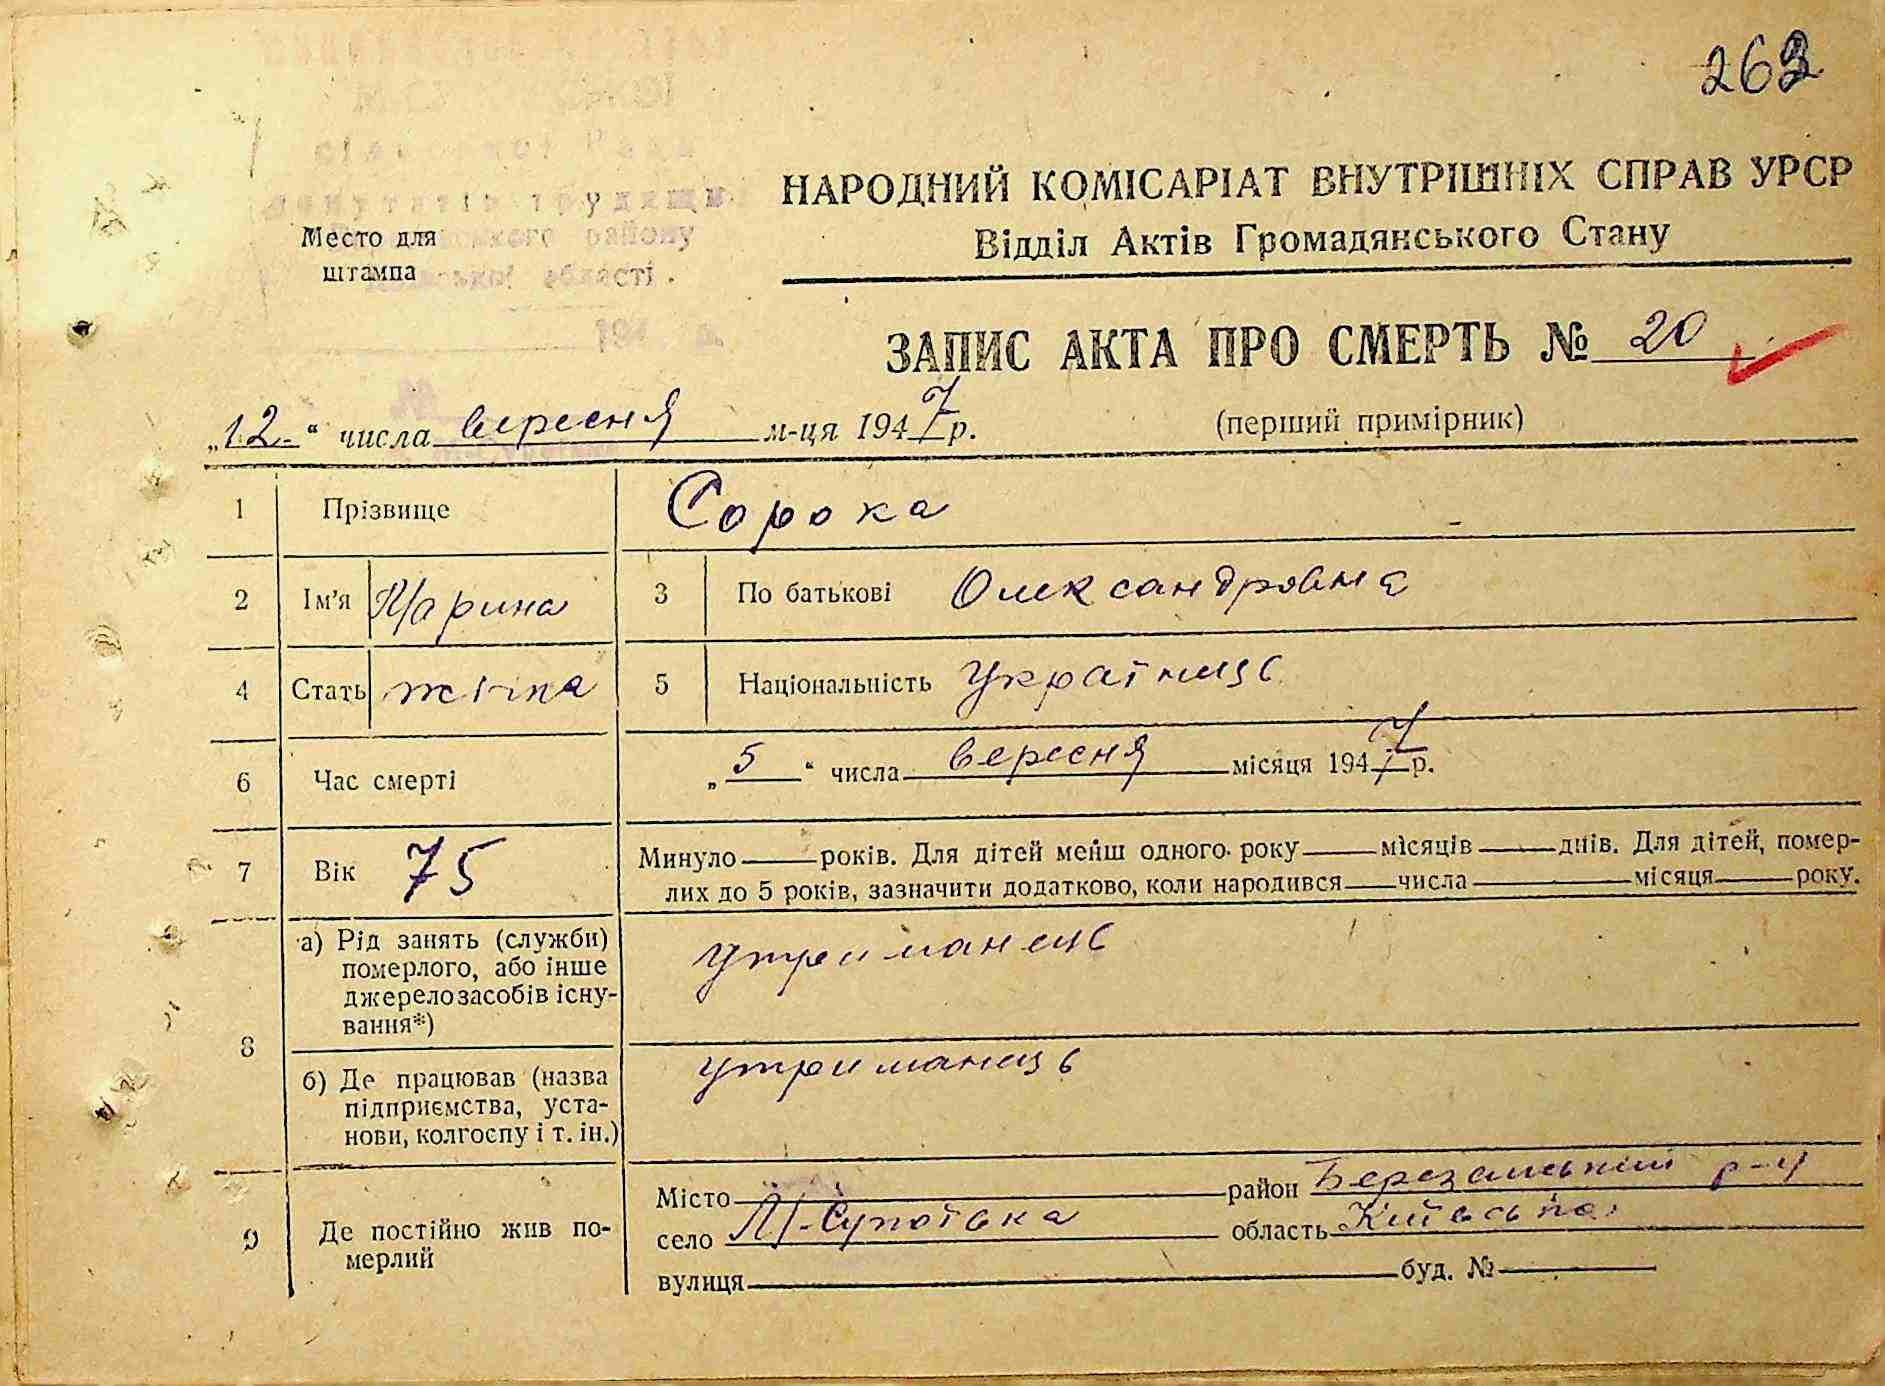 263
НАРОДНИЙ КОМІСАРІАТ ВНУТРІШНІХ СПРАВ УРСР
Відділ Актів Громадянського Стану
сільської Ради
депутатів трудящих
району
області.
Место для
штампа
ЗАПИС АКТА ПРО СМЕРТЬ № 20
„12“ числа вересня м-ця 1947 р.
(перший примірник)
1 Прізвище Сорока
2 Ім'я Марина 3 По батькові Олександровна
4 Стать жінка 5 Національність Українць
6 Час смерті „5“ числа вересня місяця 1947 р.
7 Вік 75 Минуло років. Для дітей менш одного року місяців днів. Для дітей, помер-
лих до 5 років, зазначити додатково, коли народився числа місяця року.
8 а) Рід занять (служби)
померлого, або інше
джерело засобів існу-
вання*)
утриманець
б) Де працював (назва
підприємства, уста-
нови, колгоспу і т. ін.)
утриманць
9 Де постійно жив по-
мерлий
Місто район Березанський р-н
село -Супоївка область Київська
вулиця буд. №